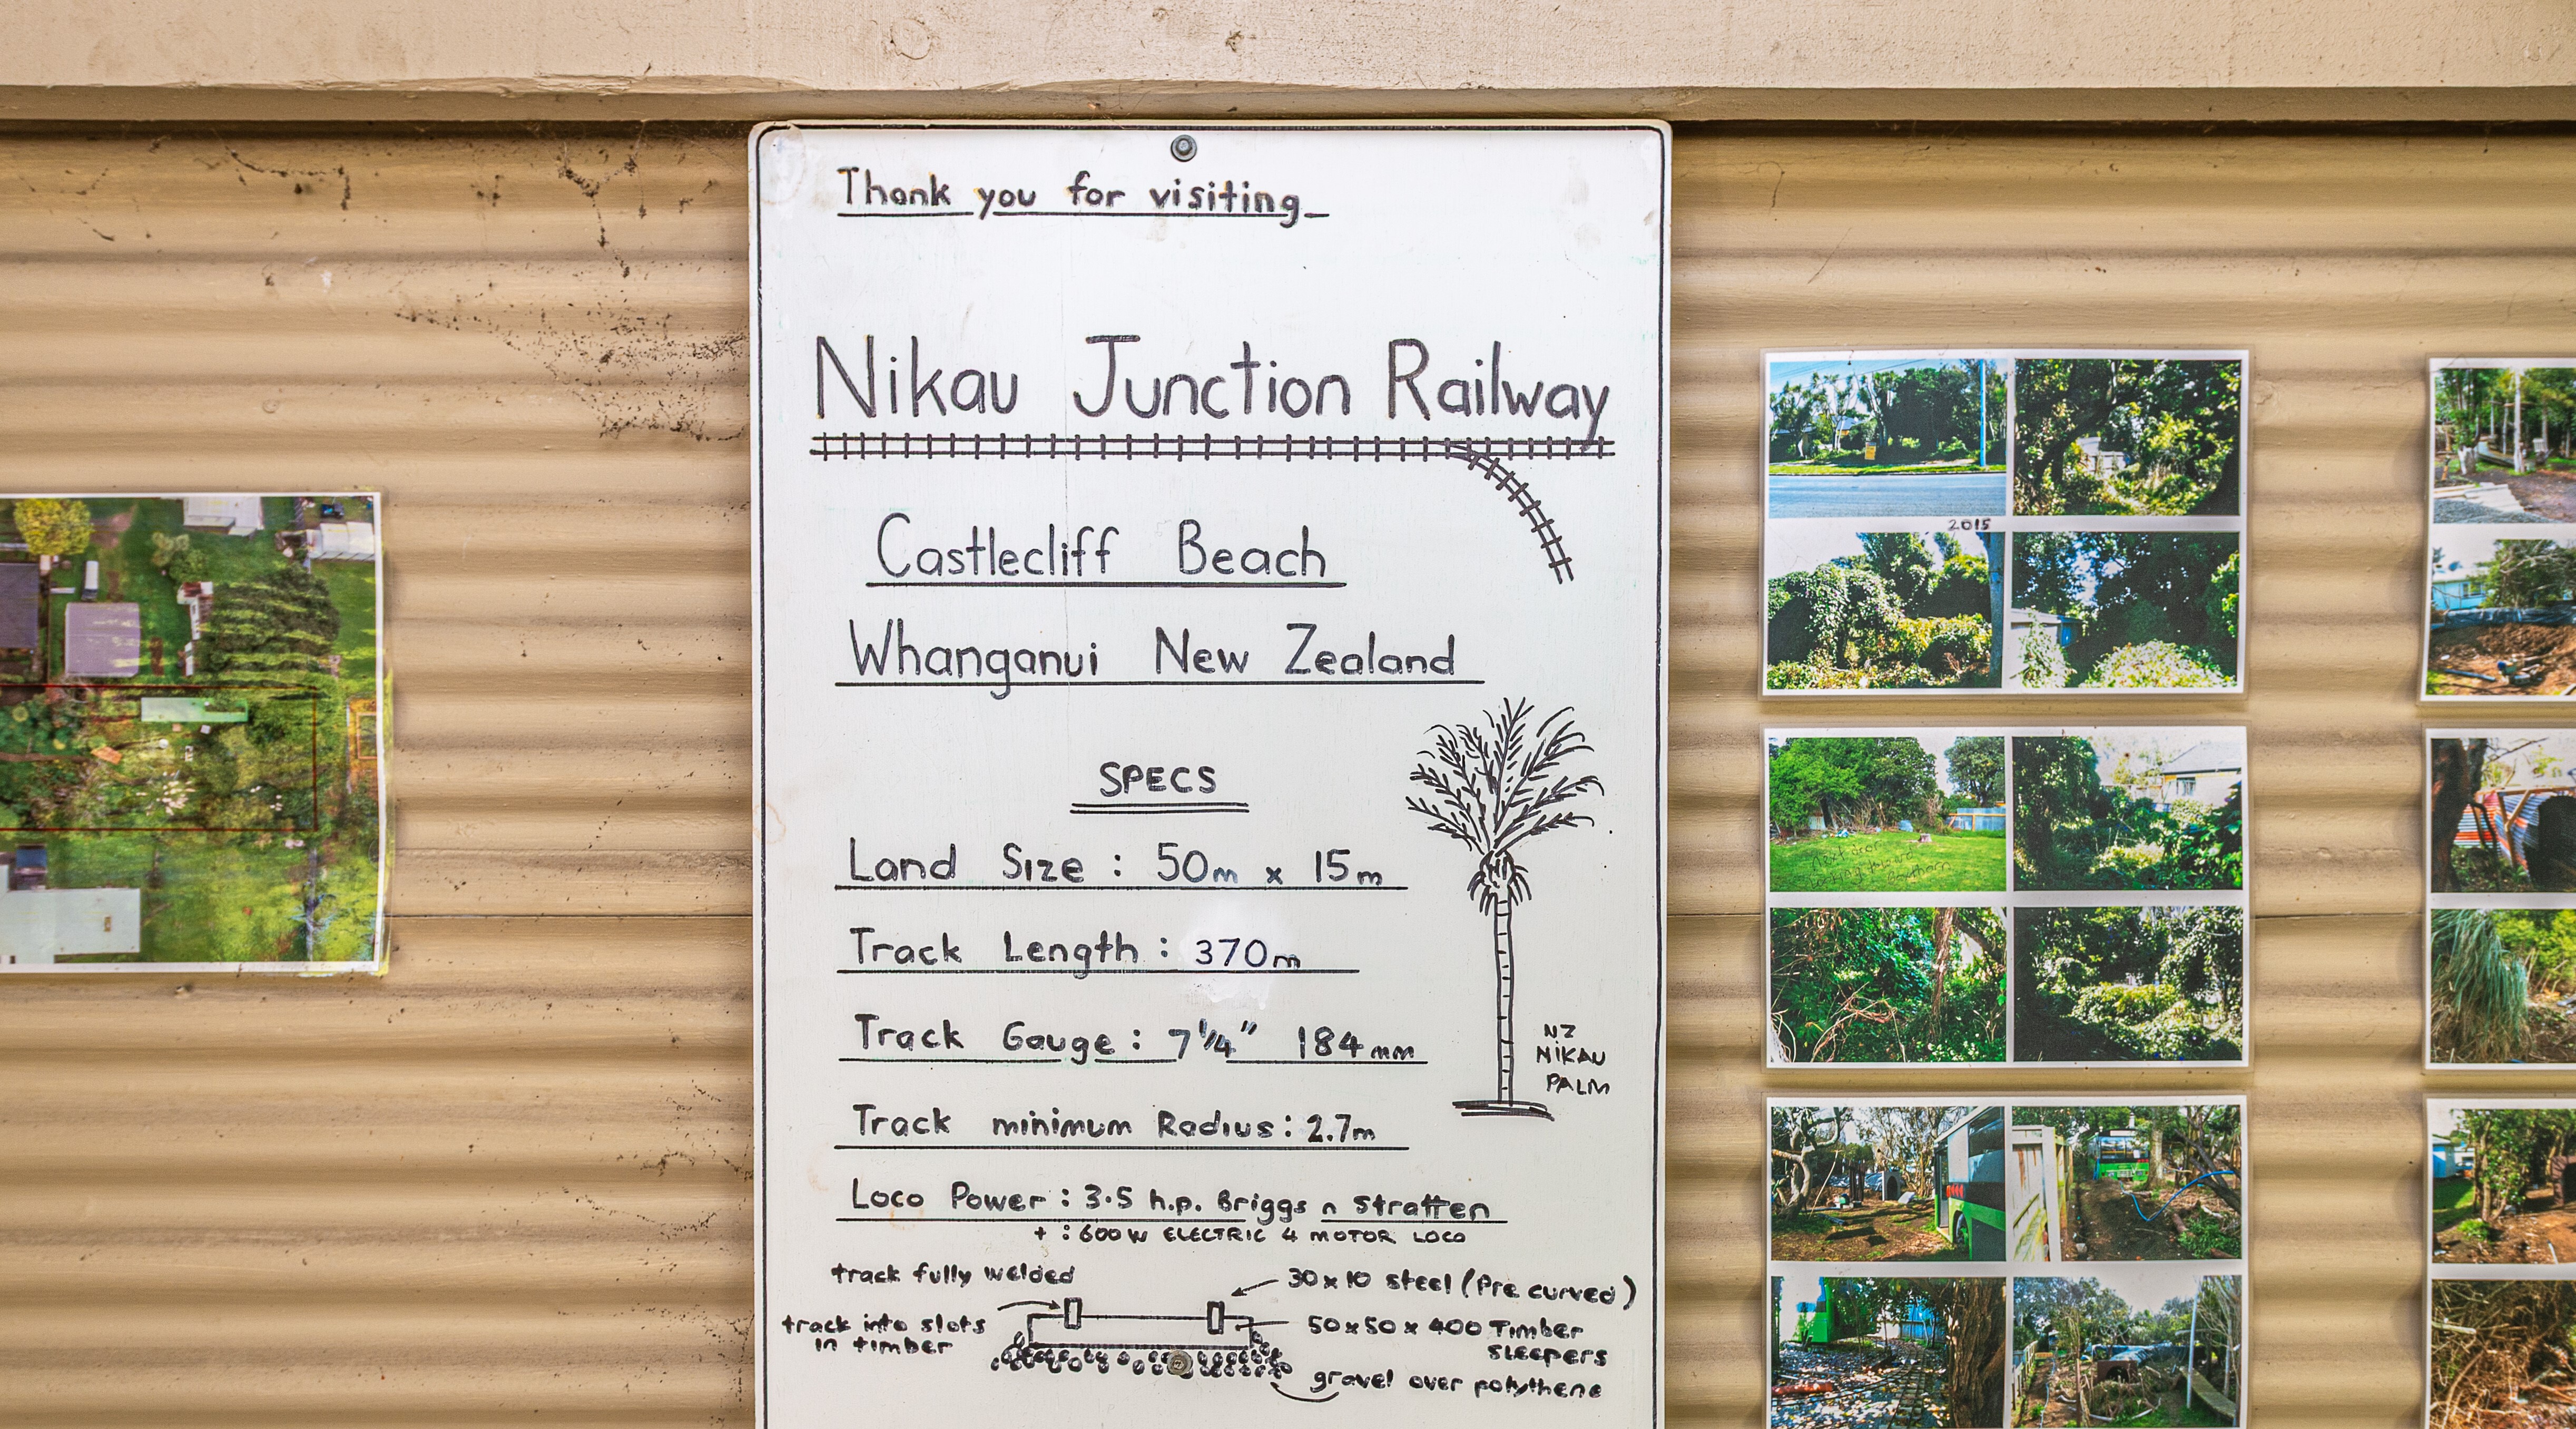 Thank you for visiting
Nikau Junction Railway
Castlecliff Beach
Whanganui New Zealand
SPECS
Land Size : 50m x 15m
Track Length : 370m
Track Gauge : 7 1/4" 184mm
Track minimum Radius : 2.7m
Loco Power : 3.5 h.p. Briggs n Stratten
+ : 600W ELECTRIC 4 MOTOR LOCO
NZ
NIKAU
PALM
track fully welded
30 x 10 steel (Pre curved)
track into slots
in timber
50 x 50 x 400 Timber
sleepers
gravel over polythene
2015